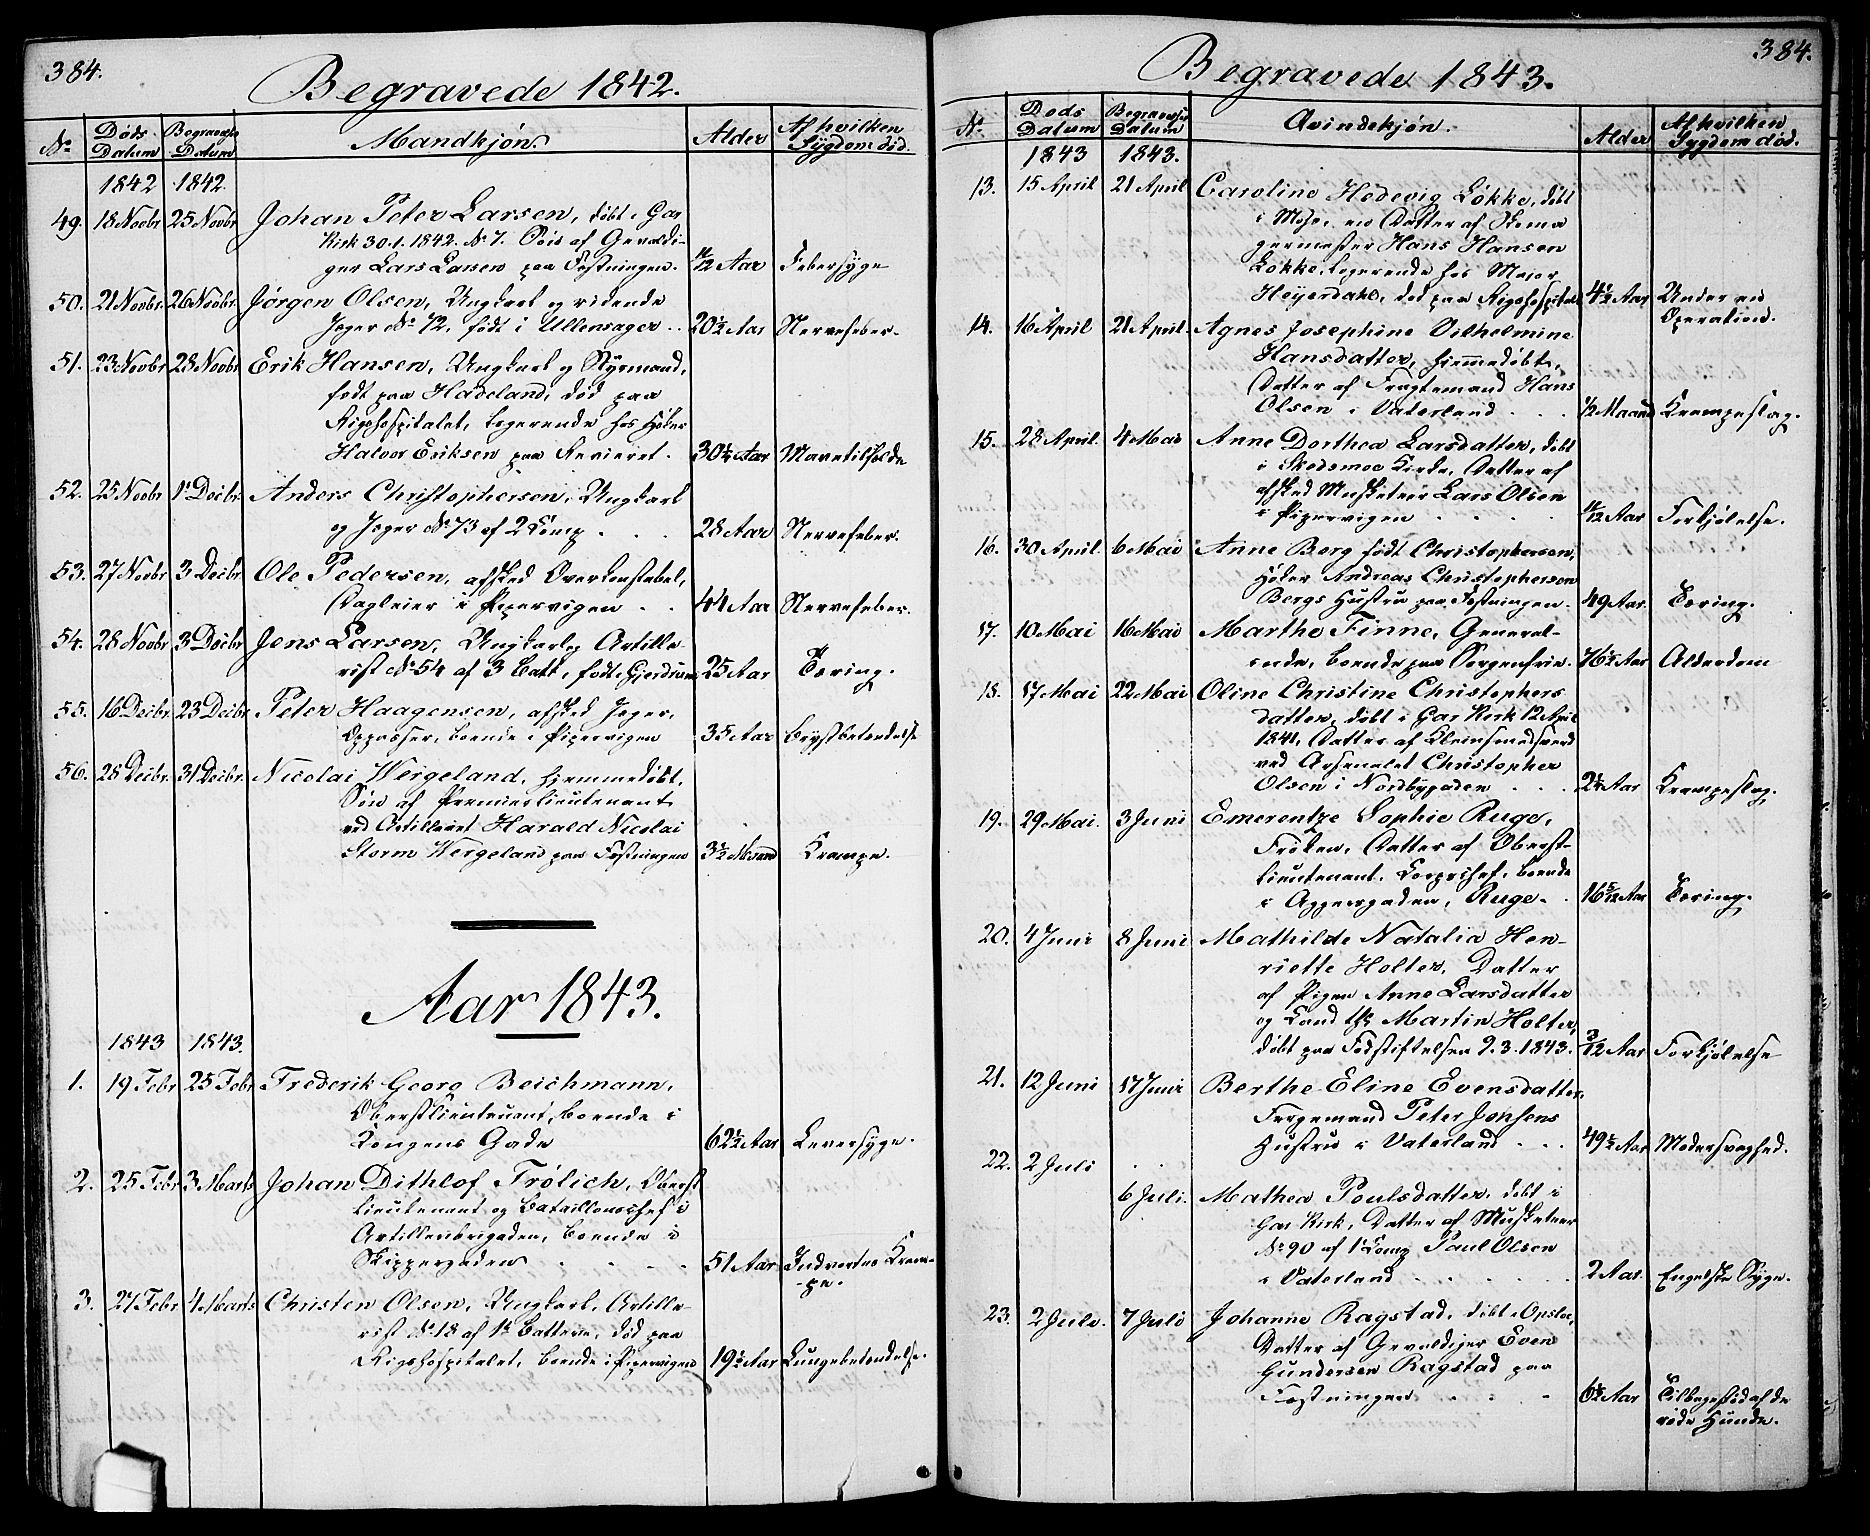 384.
Begravede 1842.
No
Døds Datum
Begravelse Datum
Mandkjøn.
Alder
Af hvilken Sygdom død.
1842 1842.
49. 18 Novbr 25 Novbr Johan Peter Larsen, døbt i Gar
Kirk 30.1.1842. No 7. Søn af Gevaldi-
ger Lars Larsen paa Fæstningen. 11/12 Aar Febersyge
50. 21 Novbr. 26 Novbr. Jørgen Olsen, Ungkarl og ridende
Jæger No 72, født i Ullensager .. 20½ Aar Nervefeber.
51. 23 Novbr 28 Novbr Erik Hansen, Ungkarl og Styrmand,
født paa Hadeland, død paa
Rigshospitalet, logerende hos Høker
Halvor Eriksen paa Revieret. 30½ Aar Mavetilfælde
52. 25 Novbr 1 Decbr. Anders Christophersen, Ungkarl
og Jæger No 73 af 2 Comp . . . 28 Aar Nervefeber.
53. 27 Novbr 3 Decbr. Ole Pedersen, afsked Overkonstabel,
Dagleier i Pipervigen . . 44 Aar Nervefeber.
54. 28 Novbr 3 Decbr Jens Larsen, Ungkarl og Artille-
rist No 54 af 3 Batt, født i Gjerdrum 25 Aar Tæring.
55. 16 Decbr. 23 Decbr Peter Haagensen, afsked Jæger,
Oppasser, boende i Pipervigen 35 Aar Brystbetændelse
56. 28 Decbr. 31 Decbr. Nicolai Wergeland, hjemmedøbt,
Søn af Premierlieutenant
ved Artilleriet Harald Nicolai
Storm Wergeland paa Fæstningen 3½ Maaned Krampe.
Aar 1843.
1843 1843.
1. 19 Febr 25 Febr Frederik Georg Beichmann,
Oberstlieutenant, boende i
Kongens Gade 62½ Aar Leversyge.
2. 25 Febr 3 Marts Johan Dithlof Frølich, Oberst
lieutenant og Bataillonschef i
Artilleribrigaden, boende i
Skippergaden . . . . 51 Aar Indvortes Kram-
pe.
3. 27 Febr 4 Marts Christen Olsen, Ungkarl, Artille-
rist No 18 af 1ste Batterie, død paa
Rigshospitalet, boende i Pipervigen 19½ Aar Lungebetændelse.
384.
Begravede 1843.
No.
Døds Datum
Begravelse Datum
Qvindekjøn.
Alder
Af hvilken Sygdom død.
1843 1843.
13. 15 April 21 April Caroline Hedevig Løkke, døbt
i Moss, en Datter af
Hans Hansen
Løkke, logerende hos Major
Heyerdahl, død paa Rigshospitalet 4½ Aar Under en
Operation.
14. 16 April 21 April. Agnes Josephine Vilhelmine
Hansdatter, hjemmedøbt,
Datter af Fragtemand Hans
Olsen i Vaterland . . . ½ Maaned Krampeslag.
15. 28 April. 4 Mai Anne Dorthea Larsdatter, døbt
i Skedsmoe Kirke, Datter af
afsked Musketeer Lars Olsen
i Pipervigen . . . . 11/12 Aar Forkjølelse.
16. 30 April. 6 Mai Anne Berg født Christophersen,
Høker Andreas Christophersen
Bergs Hustru paa Fæstningen. 49 Aar. Tæring.
17. 10 Mai 16 Mai Marthe Finne, General-
inde, boende paa Sorgenfrie. 76½ Aar Alderdom
18. 17 Mai 22 Mai Oline Christine Christophers
datter, døbt i Gar Kirk 12 April
1841, Datter af Kleinsmedsvend
ved Arsenalet Christopher
Olsen i Nordbygaden . . . 2½ Aar Krampeslag.
19. 29 Mai. 3 Juni Emerentze Sophie Ruge,
Frøken, Datter af Oberst-
lieutenant. Corpschef, boende
i Aggersgaden, Ruge. . 16 5/12 Aar Tæring.
20. 4 Juni 8 Juni Mathilde Natalia Hen-
riette Holter, Datter
af Pigen Anne Larsdatter
og Cand Martin Holter,
døbt paa Fødstiftelsen 9.3.1843. 3/12 Aar Forkjølelse
21. 12 Juni 17 Juni Berthe Eline Evensdatter,
Færgemand Peter Jonsens
Hustru i Vaterland . . . 49½ Aar Modersvaghed.
22. 2 Juli . .
6 Juli. Mathea Poulsdatter, døbt i
Gar Kirk, Datter af Musketeer
No 90 af 1 Comp Paul Olsen
i Vaterland . . . . . . 2 Aar. Engelsk Syge.
23. 2 Juli. 7 Juli Johanne Ragstad, døbt i Opsloe,
Datter af Gevaldiger Even
Gundersen Ragstad paa
Fæstningen . . . . 6½ Aar Tilbageslød af de
røde Hunde.